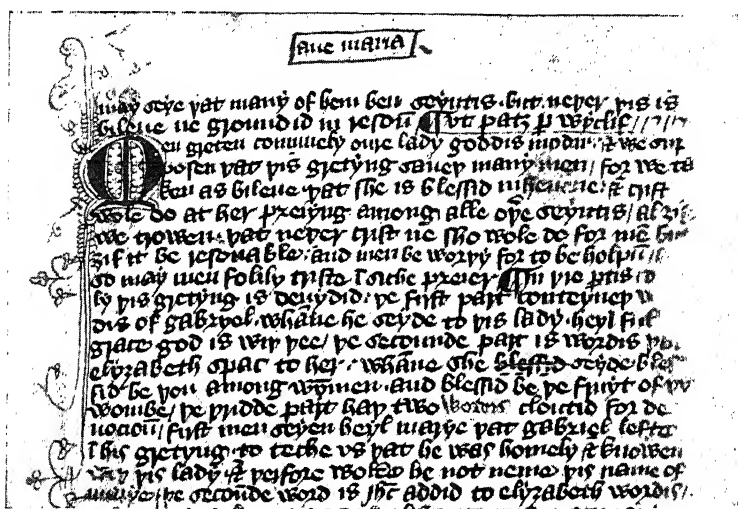 aue maria
may seye þat many of hem ben seyntis · but neþer þis is
bileue ne groundid in resoū ¶ ut patz p wyclif
Men greten comunely oure lady goddis modir · & we sup
posen þat þis gretyng saueþ many men / for we ta
ken as bileue þat she is blessid in heuene · & crist
wole do at her preiyng among alle oþe seyntis /
we trowen þat neþer crist ne sho wole do for mē
ȝif it be resonable · and men be worþy for to be holpū
so may men folily triste ī siche preier ¶ In þre ptis
ly þis gretyng is deuydid · þe first part conteyneþ
dis of gabryel · whāne he seyde to þis lady · heyl ful
grace god is wiþ þee / þe secounde part is wordis
elyzabeth spac to her · whāne she blessid seyde bles
sid be þou among wȳmen · and blessid be þe fruyt of þy
wombe / þe þridde part haþ two wordis cloutid for de
uocioū / first men seyen heyl marye þat gabriel lefte
ī his gretyng · to teche us þat he was homely & knowen
wiþ þis lady · & þerfore wolde he not neme þis name of
marye / þe secoūde word is ihc̄ addid to elyzabeth wordis /